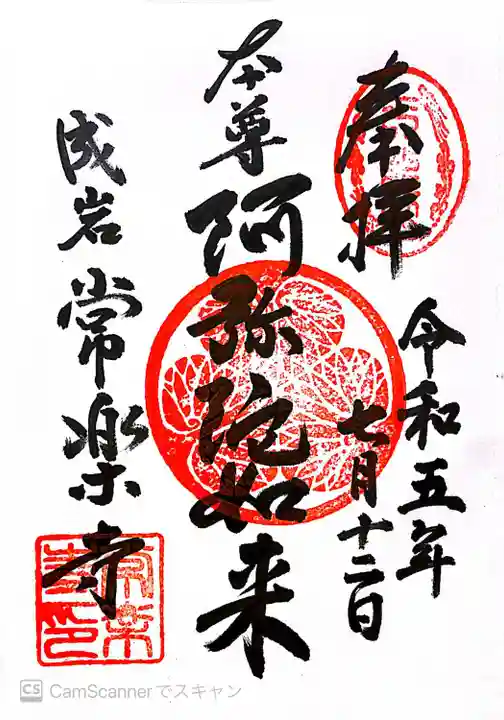 奉拝
令和五年
七月十二日
本尊
阿弥陀如来
成岩
常楽寺
CS CamScannerでスキャン